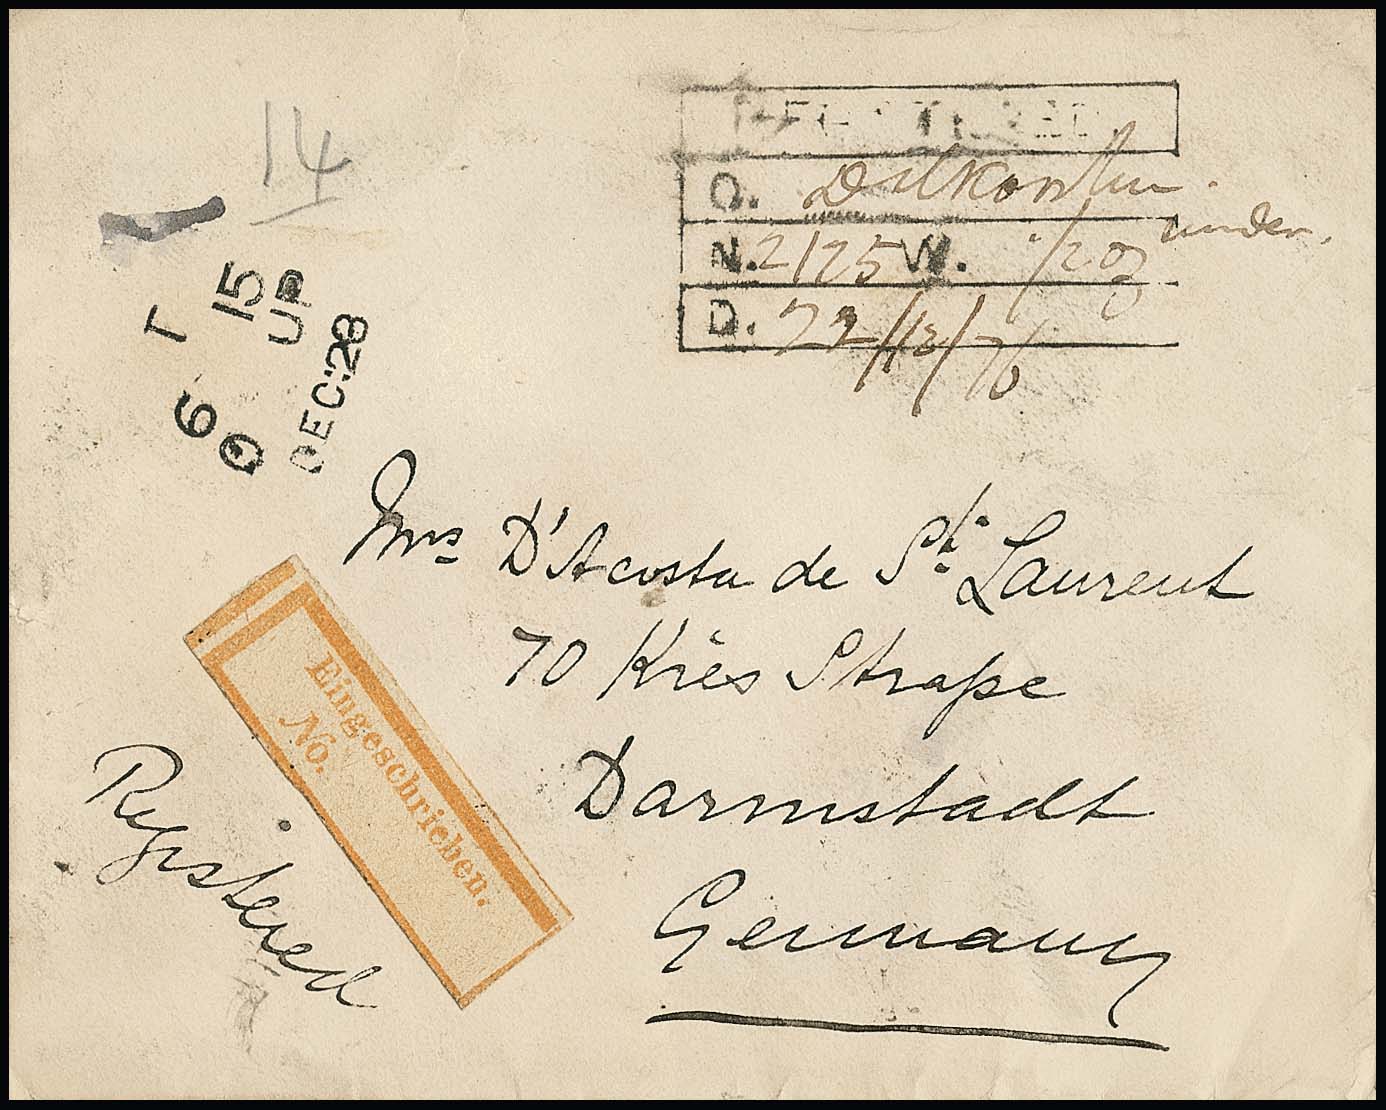 14
REGISTERED
O. Dilkousha.
N. 2125 W. 1/2 oz under.
D. 22/12/76
T 15
UP
6
DEC:28
Mrs D'Acosta de St. Laurent
70 Kriés Straße
Darmstadt
Germany
Eingeschrieben.
No.
Registered